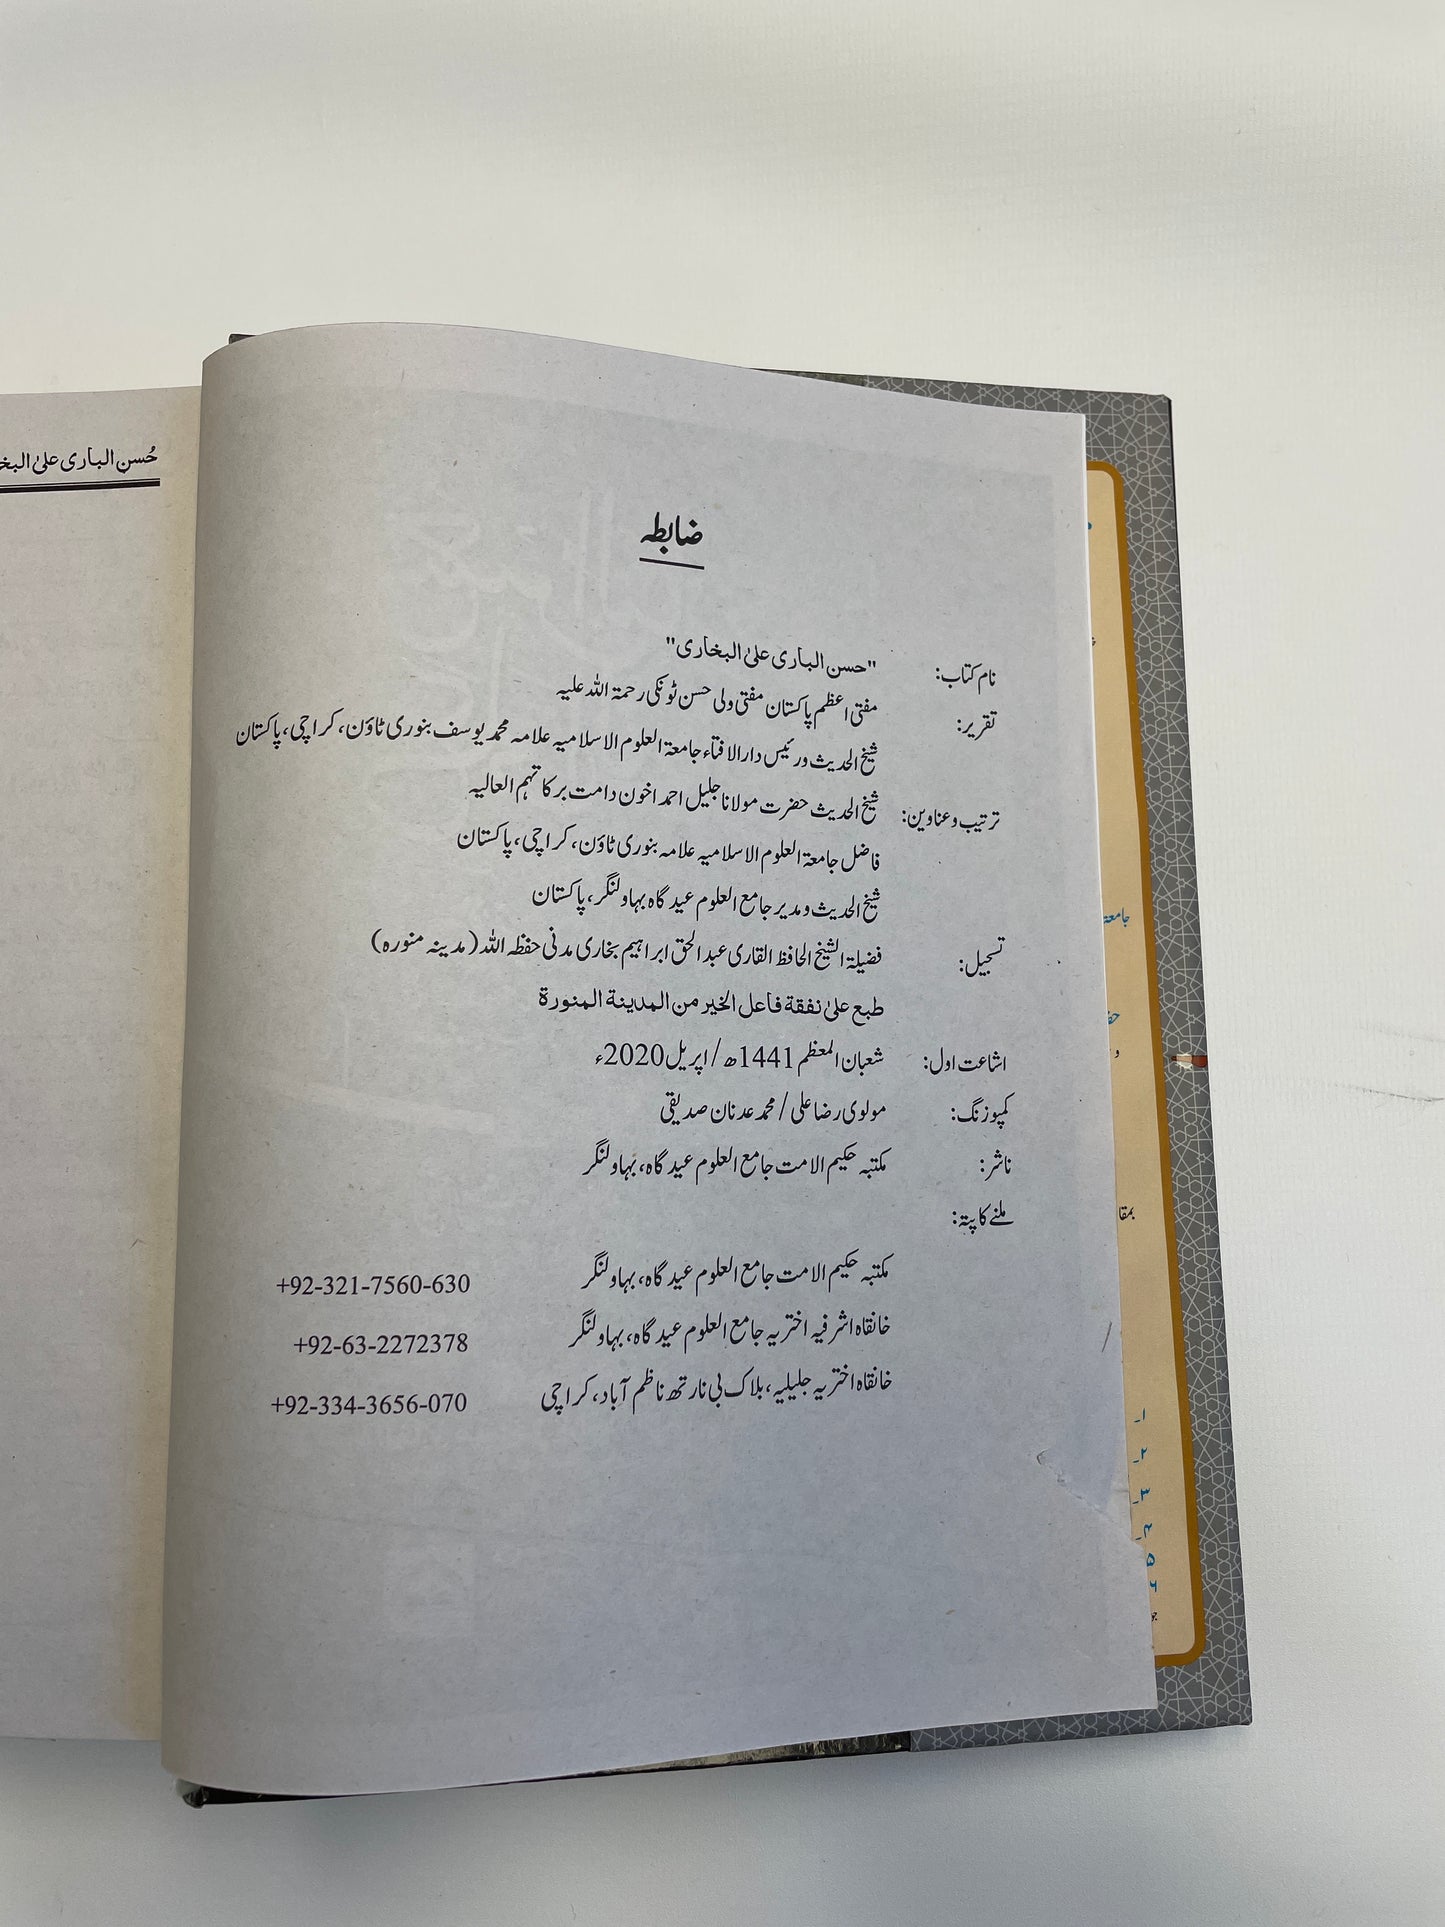 ضابطہ
نام کتاب: "حسن الباری علیٰ البخاری"
تقریر: مفتی اعظم پاکستان مفتی ولی حسن ٹونکی رحمۃ اللہ علیہ
شیخ الحدیث ورئیس دارالافتاء جامعۃ العلوم الاسلامیہ علامہ محمد یوسف بنوری ٹاؤن، کراچی، پاکستان
ترتیب وعناوین: شیخ الحدیث حضرت مولانا جلیل احمد اخون دامت برکاتہم العالیہ
فاضل جامعۃ العلوم الاسلامیہ علامہ بنوری ٹاؤن، کراچی، پاکستان
شیخ الحدیث و مدیر جامع العلوم عید گاہ بہاولنگر، پاکستان
تسجیل: فضیلۃ الشیخ الحافظ القاری عبدالحق ابراہیم بخاری مدنی حفظہ اللہ (مدینہ منورہ)
طبع علیٰ نفقة فاعل الخیر من المدینة المنورة
اشاعت اول: شعبان المعظم 1441ھ / اپریل 2020ء
کمپوزنگ: مولوی رضا علی / محمد عدنان صدیقی
ناشر: مکتبہ حکیم الامت جامع العلوم عید گاہ، بہاولنگر
ملنے کا پتہ:
مکتبہ حکیم الامت جامع العلوم عید گاہ، بہاولنگر +92-321-7560-630
خانقاہ اشرفیہ اختریہ جامع العلوم عید گاہ، بہاولنگر +92-63-2272378
خانقاہ اختریہ جلیلیہ، بلاک بی نارتھ ناظم آباد، کراچی +92-334-3656-070
حُسن الباری علیٰ
جامعۃ
۱۔
۲۔
۳۔
۴۔
۵
۶